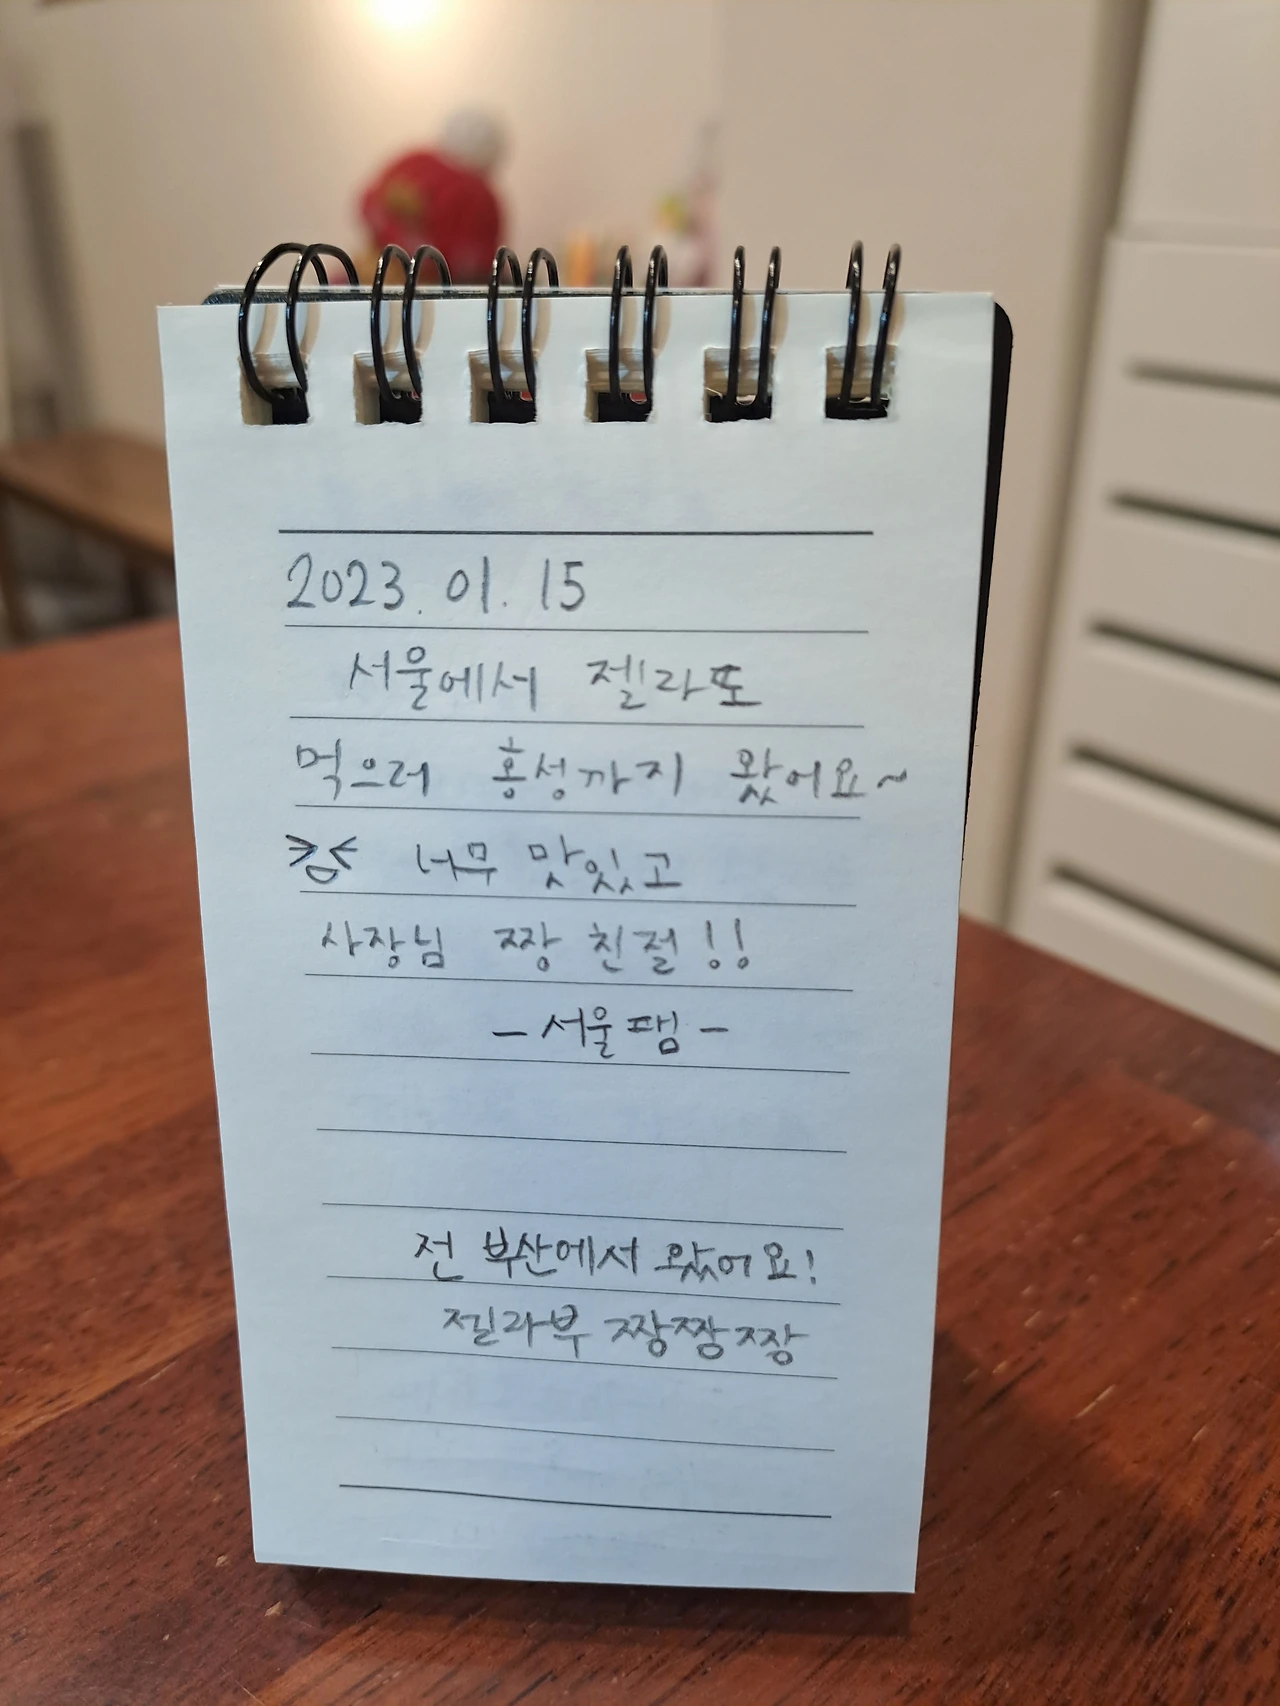 2023. 01. 15
서울에서 젤라또
먹으러 홍성까지 왔어요~
너무 맛있고
사장님 짱 친절!!
- 서울팸 -
전 부산에서 왔어요!
젤라부 짱짱짱